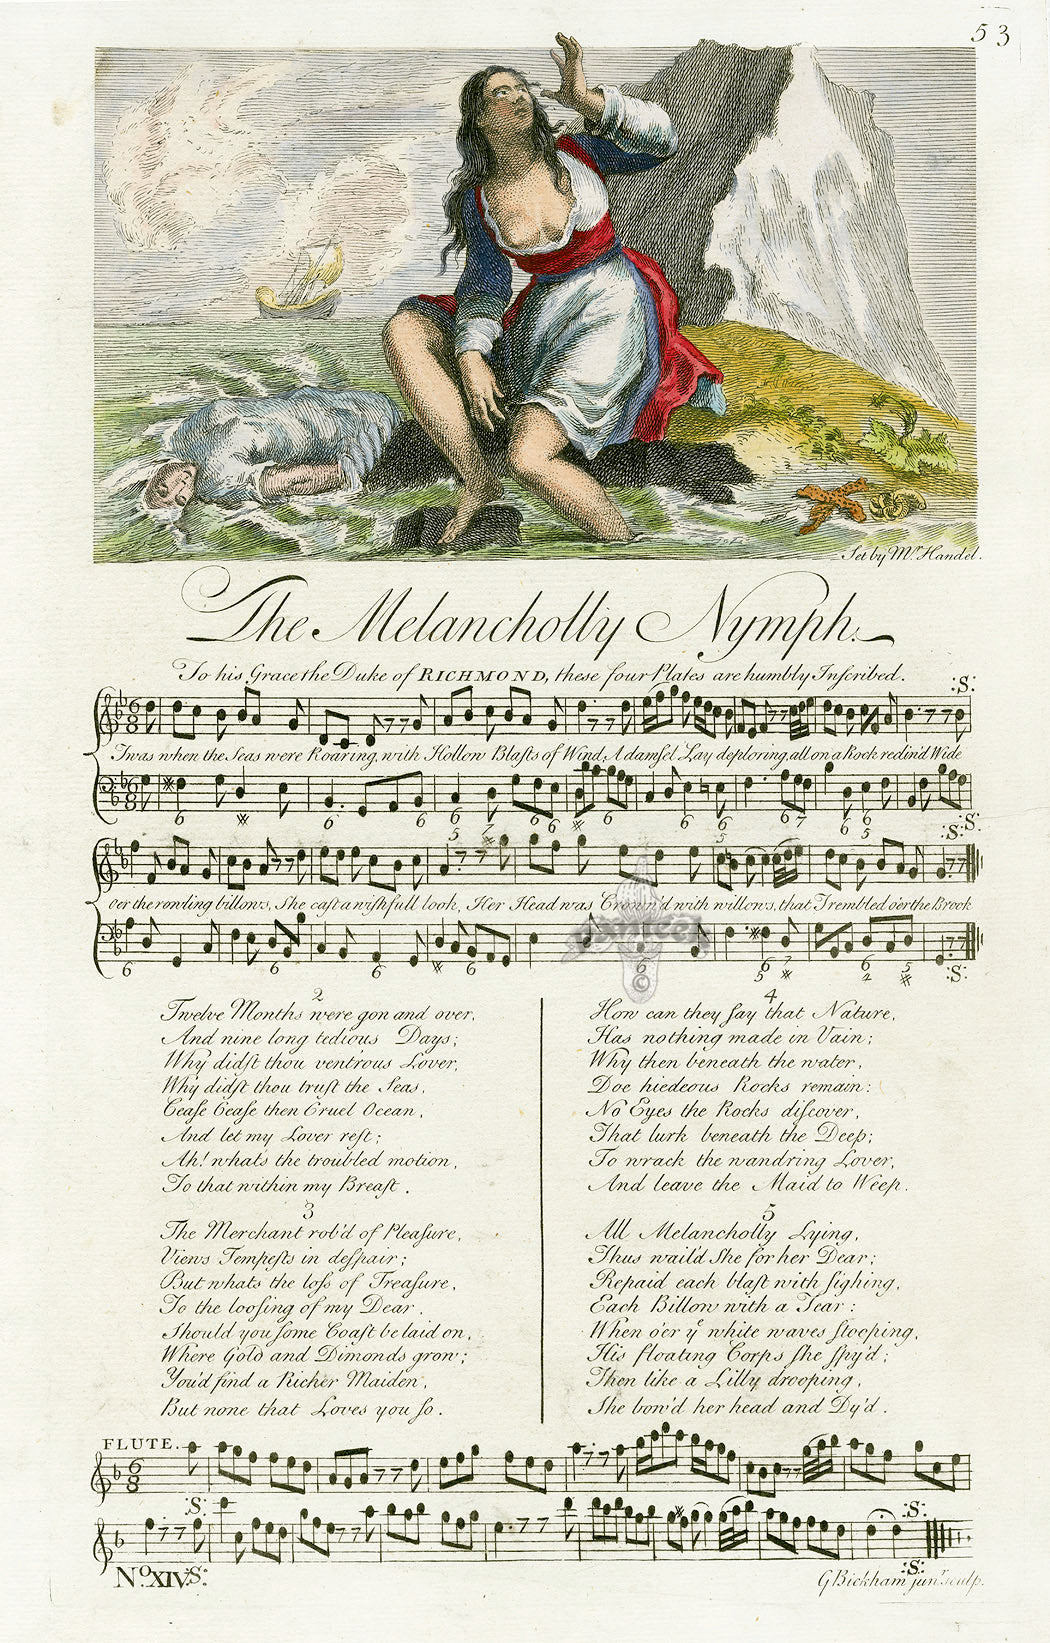 53
Set by Mr. Handel.
The Melancholly Nymph.
To his Grace the Duke of RICHMOND, these four Plates are humbly Inscribed.
:S:
'Twas when the Seas were Roaring, with Hollow Blasts of Wind, A damsel Lay deploring, all on a Rock reclin'd Wide
6 6 6 6 5 7 6 6 6 6 6 6 7 6 6 5
:S: :S:
o'er the rowling billows, She cast a wishfull look, Her Head was Crown'd with willows, that Trembled o'er the Brook
6 6 6 6 6 6 6 5 7 6 4 5
:S:
PANTEEK
©
2
Twelve Months were gon and over,
And nine long tedious Days;
Why didst thou vent'rous Lover,
Why didst thou trust the Seas,
Cease Cease then Cruel Ocean,
And let my Lover rest;
Ah! whats the troubled motion,
To that within my Breast.
3
The Merchant rob'd of Pleasure,
Views Tempests in despair;
But whats the loss of Treasure,
To the loosing of my Dear.
Should you some Coast be laid on,
Where Gold and Dimonds grow;
You'd find a Richer Maiden,
But none that Loves you so.
4
How can they say that Nature,
Has nothing made in Vain;
Why then beneath the water,
Doe hiedeous Rocks remain:
No Eyes the Rocks discover,
That lurk beneath the Deep;
To wrack the wandring Lover,
And leave the Maid to Weep.
5
All Melancholly Lying,
Thus wail'd She for her Dear;
Repaid each blast with sighing,
Each Billow with a Tear:
When o'er ye white waves stooping,
His floating Corps she spy'd;
Then like a Lilly drooping,
She bow'd her head and Dy'd.
FLUTE.
:S:
:S:
No. XIV. :S:
:S:
G Bickham junr. sculp.